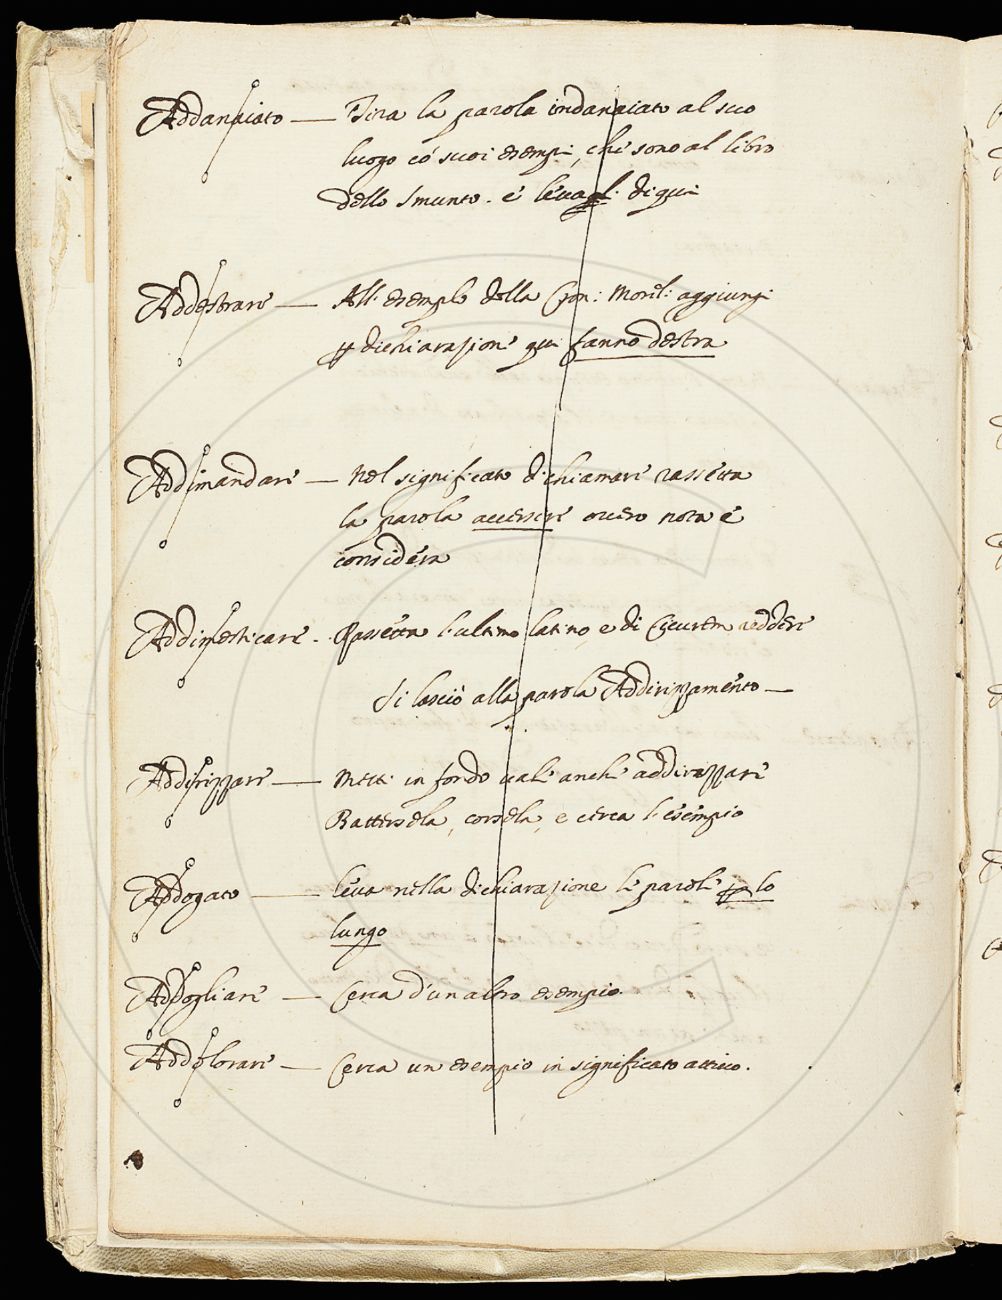 Addanaiato — Tira la parola indanaiato al suo
luogo co' suoi esempi, che sono al libro
dello Smunto. e levagl. di qui
Addestrare — All. esemplo della Cron: Morel: aggiungi
p dichiarazione qui fanno destra
Addimandare — Nel significato di chiamare rassetta
la parola accersere overo nota e
considera
Addimesticare. Rassetta l'ultimo latino, e di Cicurem reddere
Si lasciò alla parola Addirizzamento —
Addirizzare — Metti in fondo vale anche addirizzare
Battersela, corsela, e cerca l'esempio
Addogato — leva nella dichiarazione le parole p lo
lungo
Addogliare — Cerca d'un altro esempio.
Addolorare — Cerca un esempio in significato attivo.